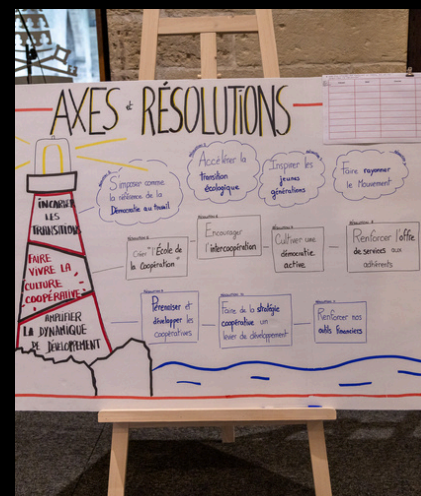 AXES & RÉSOLUTIONS
INCARNER
LES
TRANSITIONS
FAIRE
VIVRE LA
CULTURE
COOPÉRATIVE
AMPLIFIER
LA DYNAMIQUE
DE DÉVELOPPEMENT
S'imposer comme
la référence de la
Démocratie au travail
Accélérer la
transition
écologique
Inspirer les
jeunes
générations
Faire rayonner
le Mouvement
Créer "l'École de
la Coopération"
Encourager
l'intercoopération
Cultiver une
démocratie
active
Renforcer l'offre
de services aux
adhérents
Pérenniser et
développer les
coopératives
Faire de la stratégie
coopérative un
levier de développement
Renforcer nos
outils financiers